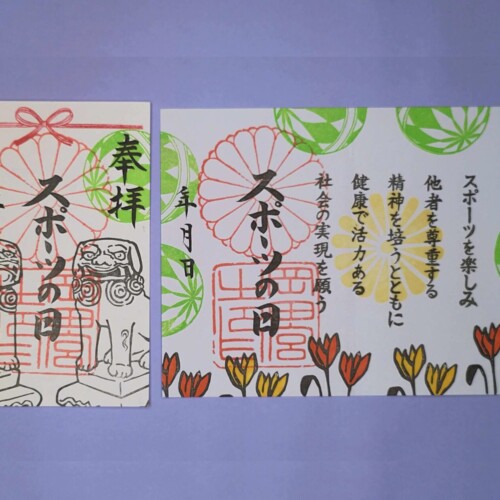 奉拝
スポーツの日
スポーツを楽しみ
他者を尊重する
精神を培うとともに
健康で活力ある
社会の実現を願う
スポーツの日
年月日